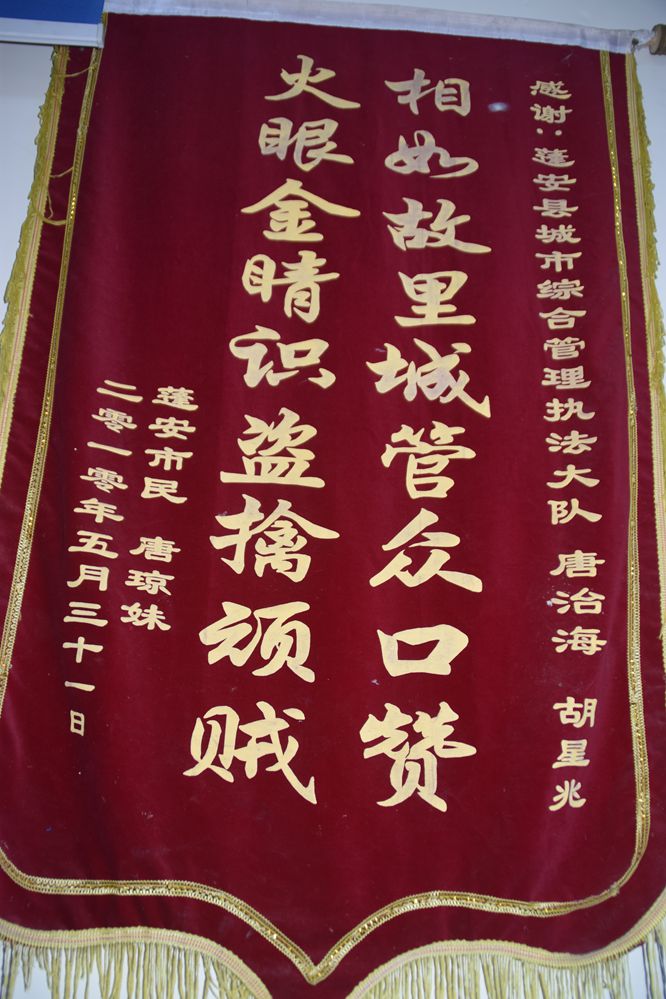 感谢：蓬安县城市综合管理执法大队 唐治海 胡星兆
相如故里城管众口赞
火眼金睛识盗擒顽贼
蓬安市民 唐琼妹
二零一零年五月三十一日